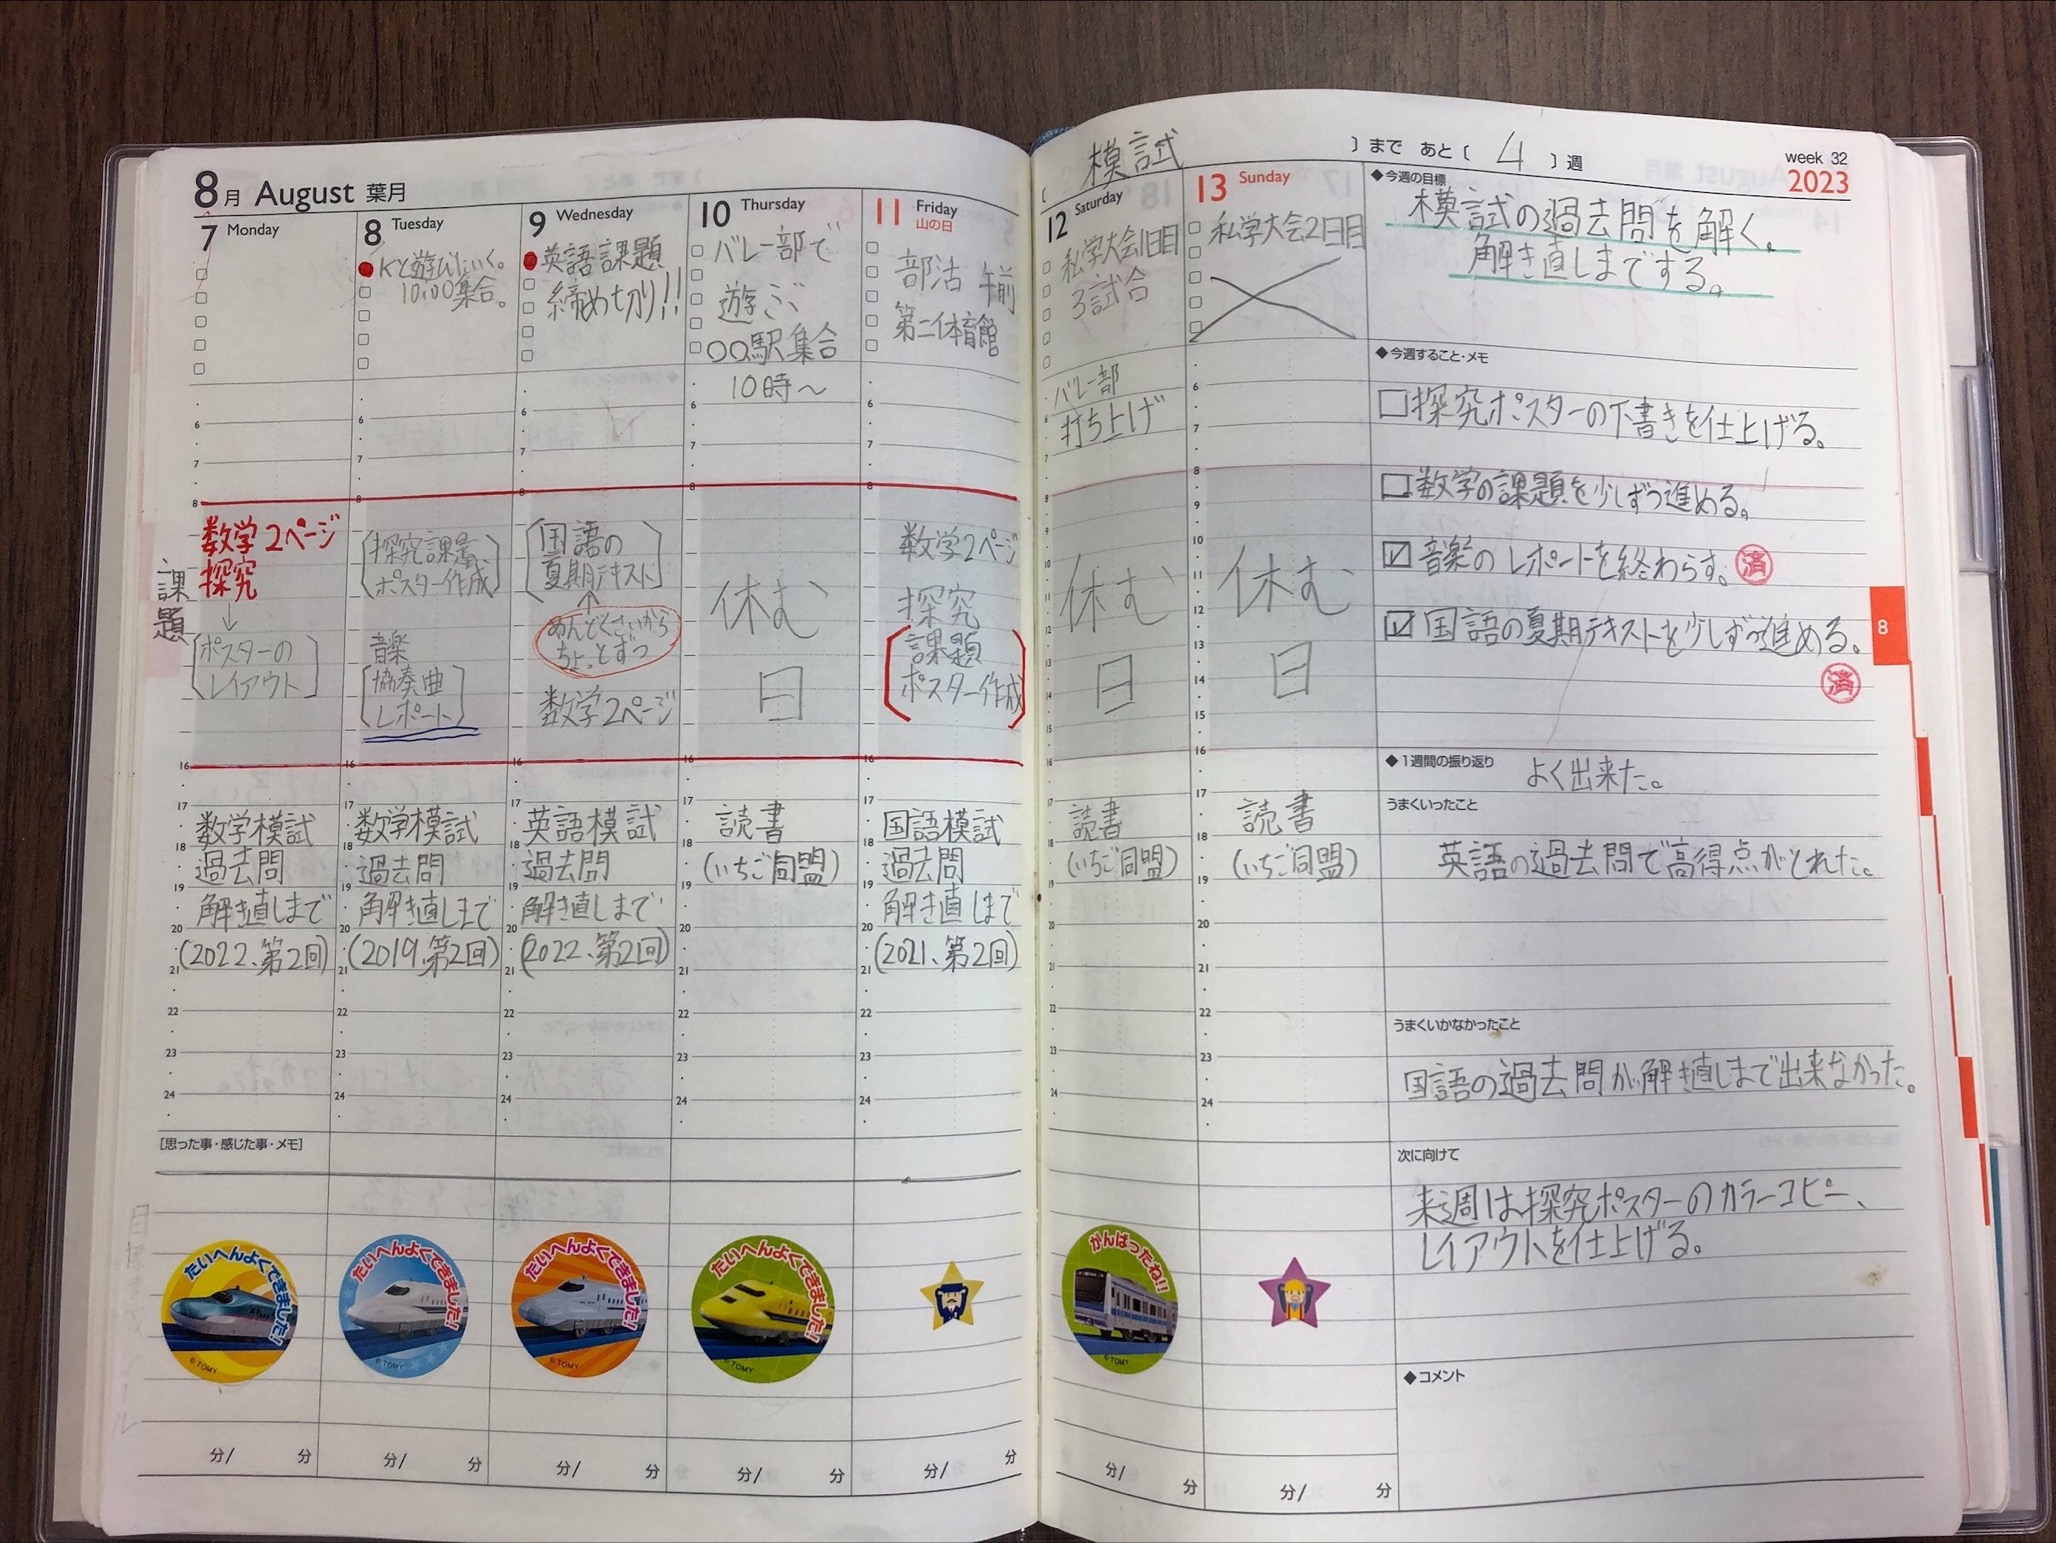 8月 August 葉月
7 Monday
8 Tuesday
Kと遊びにいく。
10:00集合。
9 Wednesday
英語課題
締め切り!!
10 Thursday
バレー部で
遊ぶ
〇〇駅集合
10時〜
11 Friday
山の日
部活 午前
第二体育館
課題
数学2ページ
探究
↓
ポスターの
レイアウト
探究課題
ポスター作成
音楽
協奏曲
レポート
国語の
夏期テキスト
↑
めんどくさいから
ちょっとずつ
数学2ページ
休む
日
数学2ページ
探究
課題
ポスター作成
数学模試
過去問
解き直しまで
(2022、第2回)
数学模試
過去問
解き直しまで
(2019、第2回)
英語模試
過去問
解き直しまで
(2022、第2回)
読書
(いちご同盟)
国語模試
過去問
解き直しまで
(2021、第2回)
6
7
8
16
17
18
19
20
21
22
23
24
[思った事・感じた事・メモ]
たいへんよくできました!
©TOMY
たいへんよくできました!
©TOMY
たいへんよくできました!
©TOMY
たいへんよくできました!
©TOMY
分/ 分
分/ 分
分/ 分
分/ 分
分/ 分
( 模試 )まで あと( 4 )週
week 32
2023
12 Saturday
私学大会1日目
3試合
バレー部
打ち上げ
休む
日
読書
(いちご同盟)
がんばったね!!
©TOMY
分/ 分
13 Sunday
私学大会2日目
休む
日
読書
(いちご同盟)
分/ 分
6
7
8
9
10
11
12
13
14
15
16
17
18
19
20
21
22
23
24
◆今週の目標
模試の過去問を解く。
解き直しまでする。
◆今週すること・メモ
□探究ポスターの下書きを仕上げる。
□数学の課題を少しずつ進める。
☑音楽のレポートを終わらす。 済
☑国語の夏期テキストを少しずつ進める。
済
8
◆1週間の振り返り よく出来た。
うまくいったこと
英語の過去問で高得点がとれた。
うまくいかなかったこと
国語の過去問が解き直しまで出来なかった。
次に向けて
来週は探究ポスターのカラーコピー、
レイアウトを仕上げる。
◆コメント